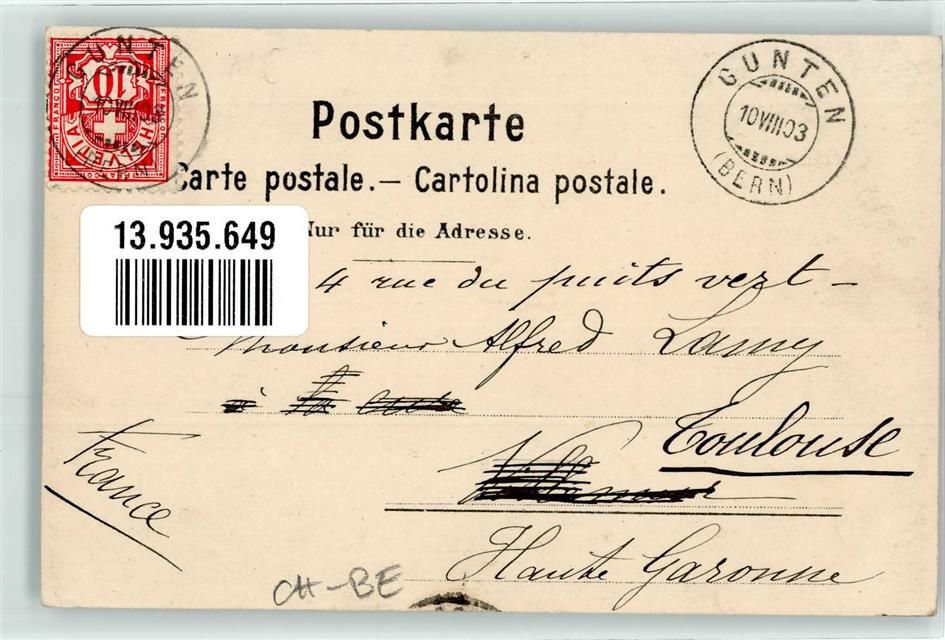 GUNTEN
10
FRANCO
HELVETIA
GUNTEN
10 VIII 03
(BERN)
Postkarte
Carte postale. — Cartolina postale.
Nur für die Adresse.
13.935.649
4 rue du puits vert —
Monsieur Alfred Lamy
à la
Toulouse
France
Haute Garonne
CH-BE